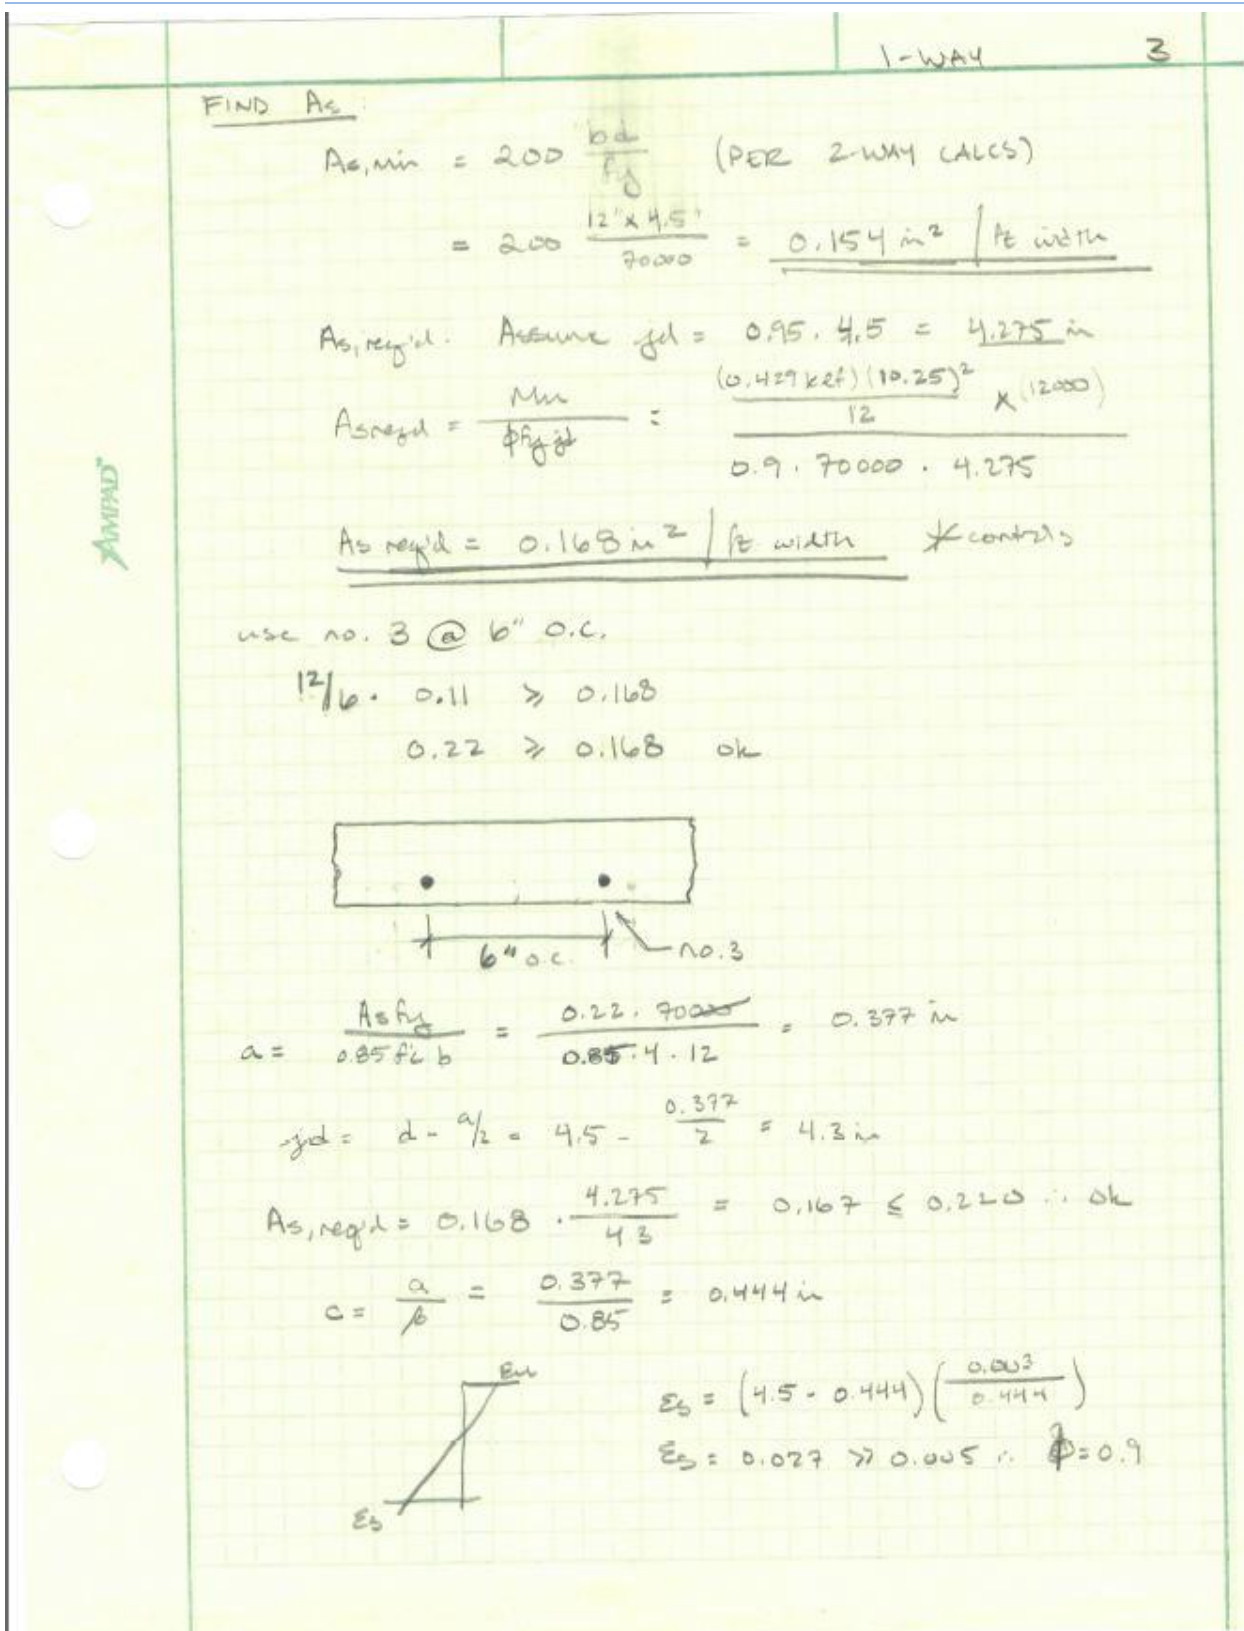 1-WAY 3
FIND As:
As,min = 200 bd/fy (PER 2-WAY CALCS)
= 200 12"x4.5"/70000 = 0.154 in² / ft width
As,req'd. Assume jd = 0.95 . 4.5 = 4.275 in
As req'd = Mu/ϕfy jd = (0.429 klf)(10.25)²/12 x (12000) / 0.9 . 70000 . 4.275
As req'd = 0.168 in² / ft width * controls
AMPAD™
use no. 3 @ 6" O.C.
12/6 . 0.11 ≥ 0.168
0.22 ≥ 0.168 ok
6" o.c. no.3
a = As fy/0.85 f'c b = 0.22 . 70000/0.85 . 4 . 12 = 0.377 in
jd = d - a/2 = 4.5 - 0.377/2 = 4.3 in
As,req'd = 0.168 . 4.275/4.3 = 0.167 ≤ 0.220 ∴ ok
c = a/β = 0.377/0.85 = 0.444 in
εu
εs = (4.5 - 0.444)(0.003/0.444)
εs = 0.027 >> 0.005 ∴ ϕ = 0.9
εs